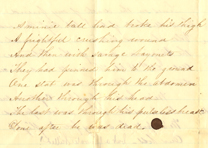 A minnie ball had broke his thigh
A frightful crushing wound
And then with savage bayonets
They had pinned him to the ground
One shot was through the abdomen
Another through his head
The last was through his pulseless heart
Done after he was dead